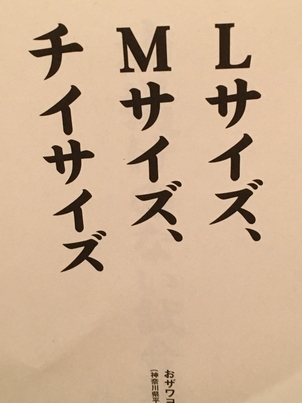 Lサイズ、
Mサイズ、
チイサイズ
おザワコ
(神奈川県平